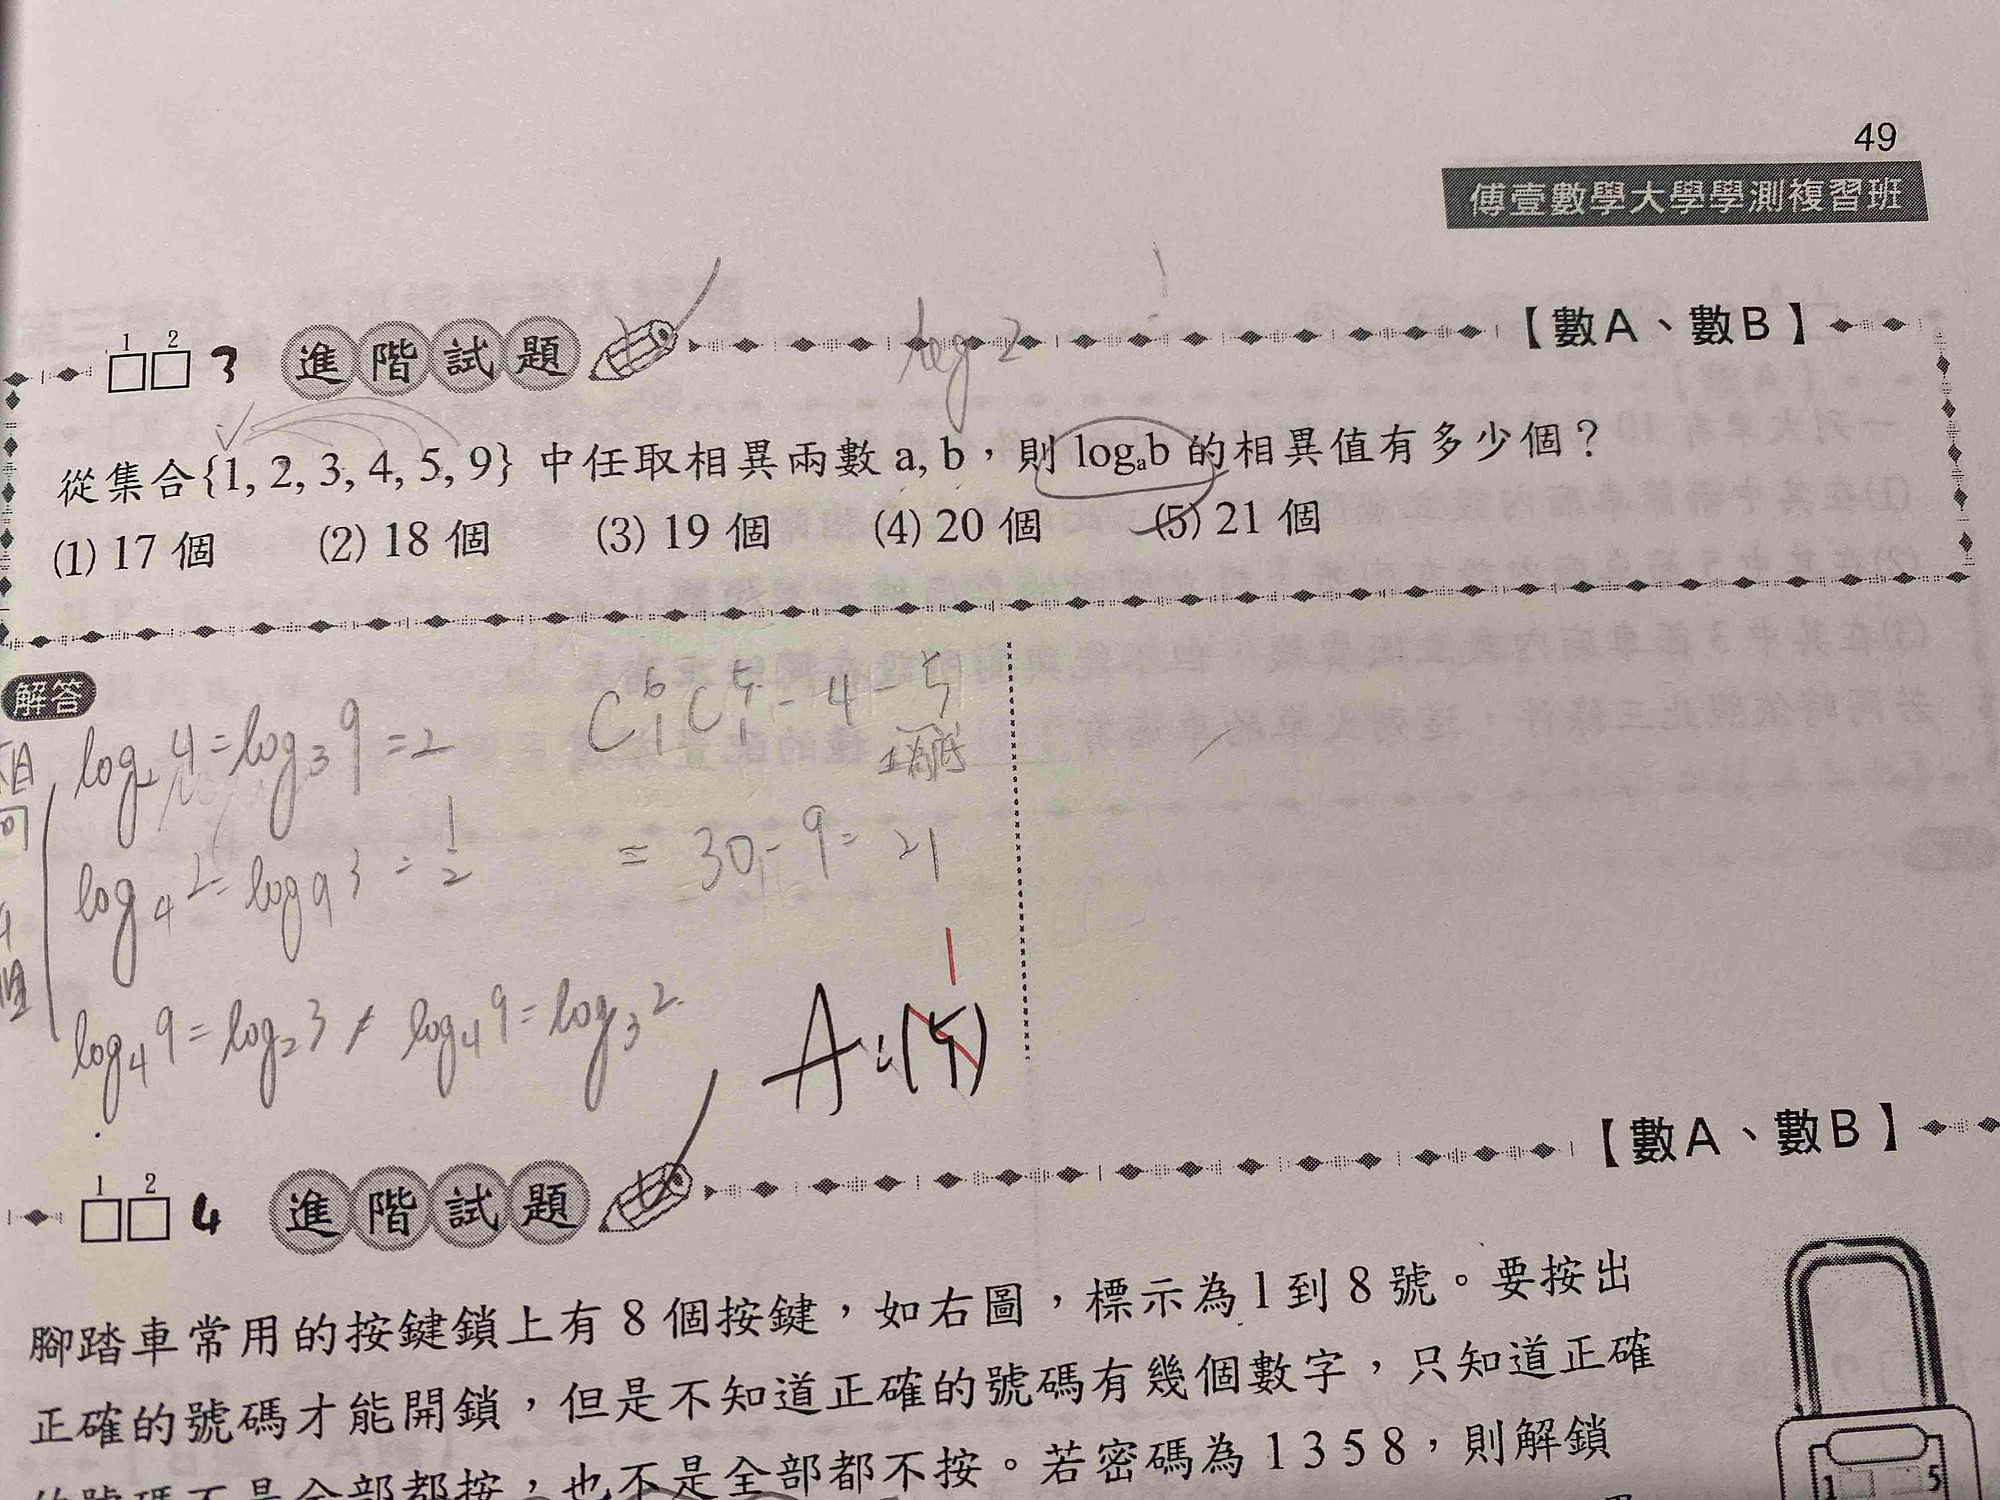 49
傅壹數學大學學測複習班
log 2
1 2
□□ 3 進階試題 【數A、數B】
從集合{1, 2, 3, 4, 5, 9} 中任取相異兩數 a, b，則 logₐb 的相異值有多少個？
(1) 17 個 (2) 18 個 (3) 19 個 (4) 20 個 (5) 21 個
解答
相同
log₂4 = log₃9 = 2
log₄2 = log₉3 = 1/2
log₄9 = log₂3 , log₄9 = log₃2
C⁶₁C⁵₁ - 4 - 5
1為底
= 30 - 9 = 21
1
A:(5)
1 2
□□ 4 進階試題 【數A、數B】
腳踏車常用的按鍵鎖上有 8 個按鍵，如右圖，標示為 1 到 8 號。要按出
正確的號碼才能開鎖，但是不知道正確的號碼有幾個數字，只知道正確
的號碼不是全部都按，也不是全部都不按。若密碼為 1 3 5 8，則解鎖
1 5